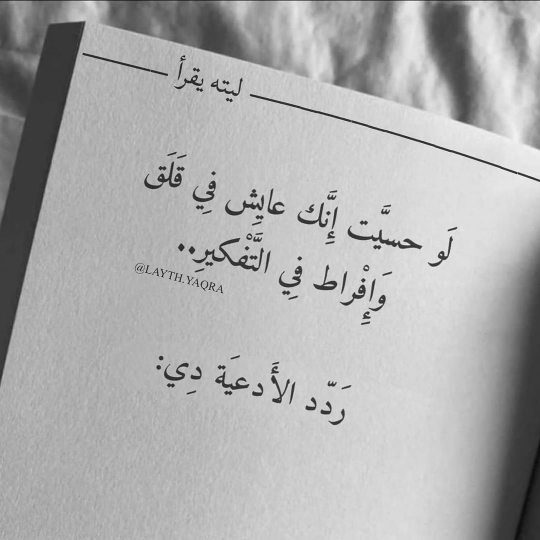 ليته يقرأ
لَو حسيَّت إِنَّك عايِش فِي قَلَق
وَإِفْراط فِي التَّفْكيرِ..
@LAYTH.YAQRA
رَدّد الأَدعيَة دِي: